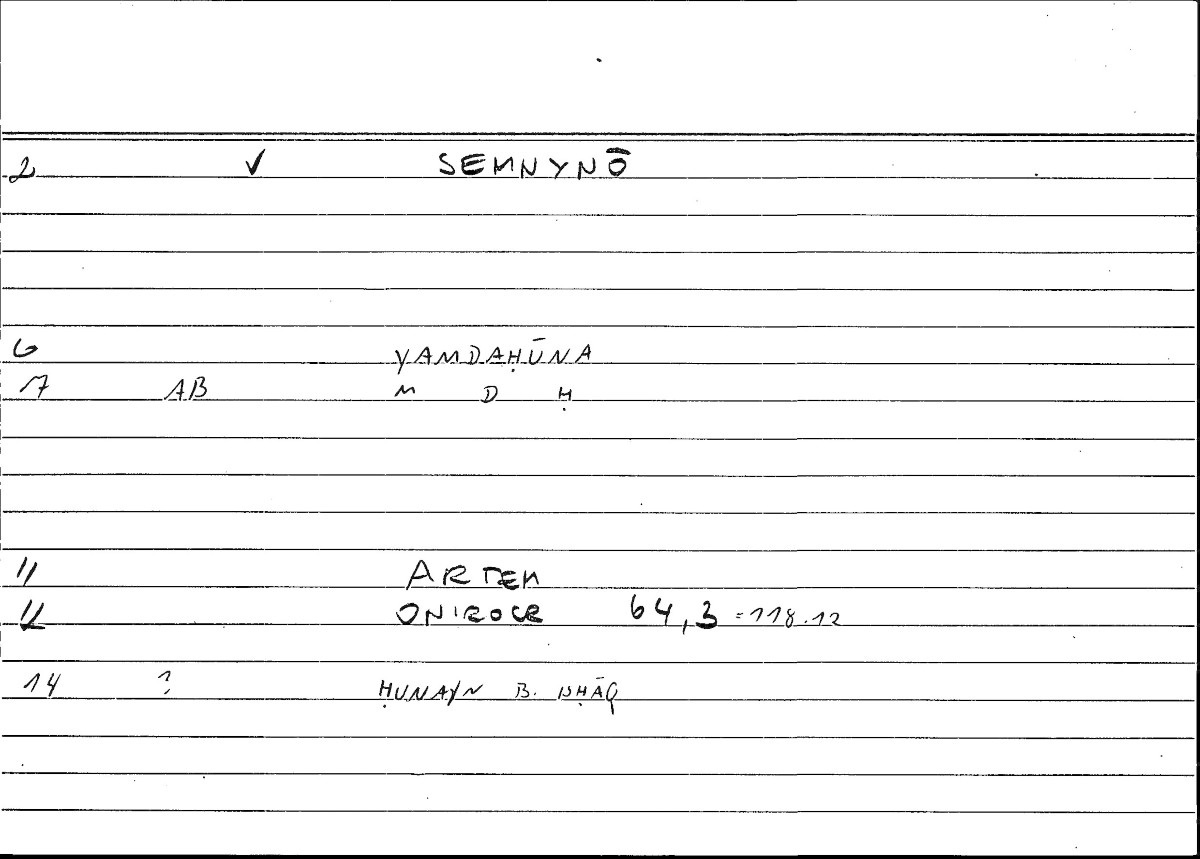 2 ✓ SEMNYNŌ
6 YAMDAḤŪNA
17 AB M D Ḥ
11 ARTEM
12 ONIROCR 64,3 = 118.12
14 ? ḤUNAYN B. ISḤĀQ